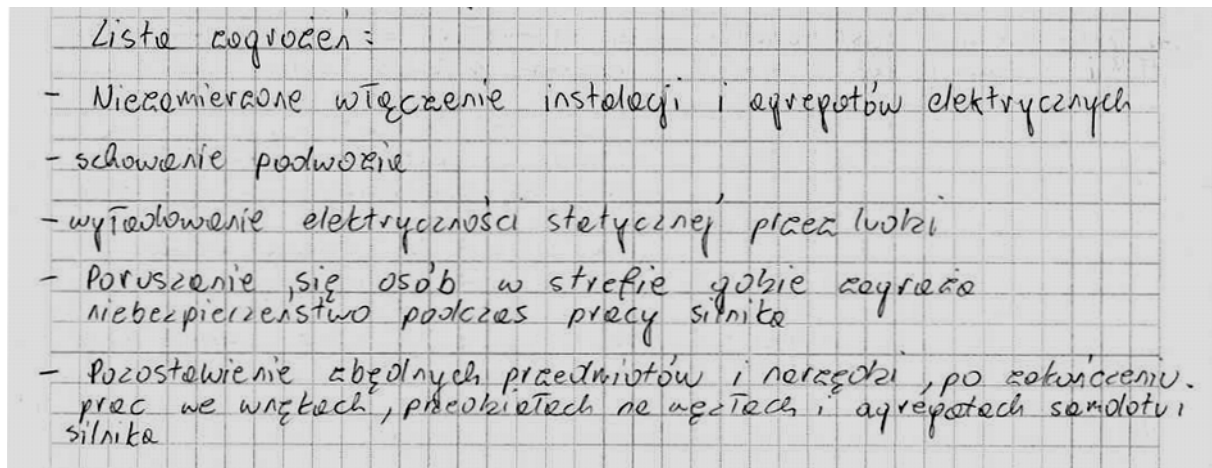 Lista zagrożeń:
- Niezamierzone włączenie instalacji i agregatów elektrycznych
- schowanie podwozia
- wyładowanie elektryczności statycznej przez ludzi
- Poruszanie się osób w strefie gdzie zagraża
niebezpieczeństwo podczas pracy silnika
- Pozostawienie zbędnych przedmiotów i narzędzi, po zakończeniu.
prac we wnękach, przedziałach na węzłach i agregatach samolotu i
silnika